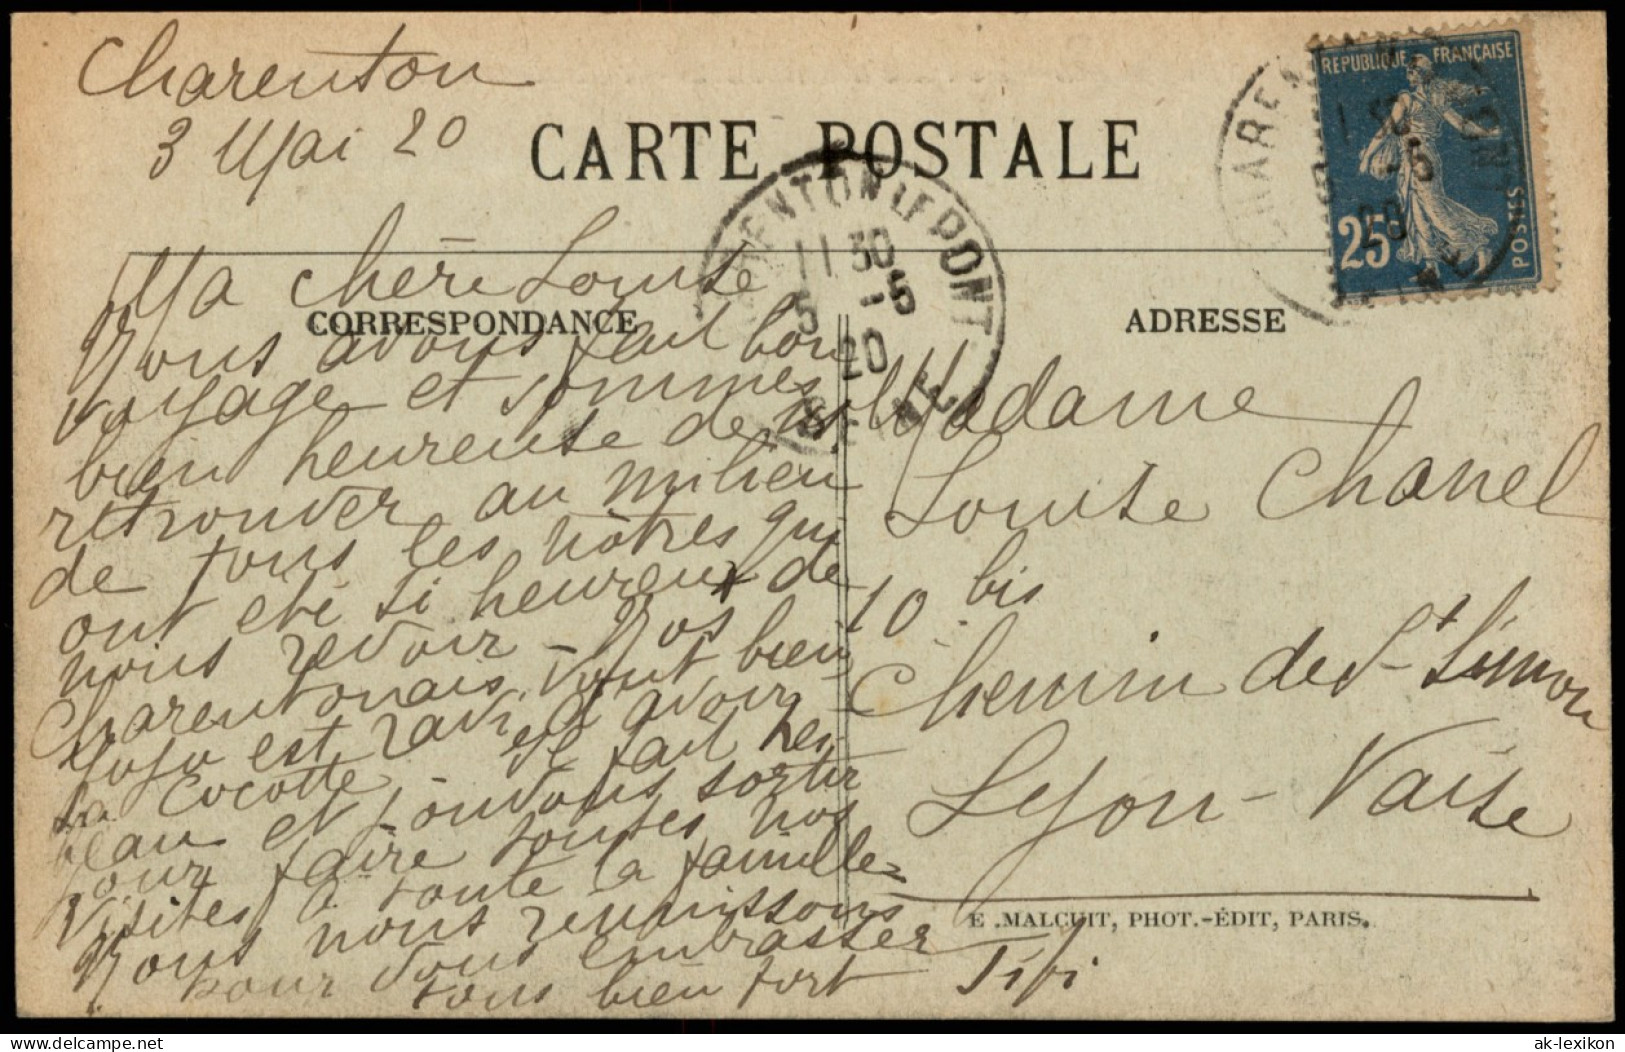 Charenton
3 Mai 20
CARTE POSTALE
CORRESPONDANCE
ADRESSE
REPUBLIQUE FRANÇAISE
25c
POSTES
CHARENTON LE PONT
11 30
5 -5
20
SEINE
Ma chère Louise
Nous avons fait bon
voyage et sommes
bien heureuse de
retrouver au milieu
de tous les nôtres qui
ont été si heureux de
nous revoir - Nos
Charentonais vont bien
est ravie d'avoir
sa cocotte. Il fait très
beau et pouvons sortir
pour faire toutes nos
visites à toute la famille
Nous nous reunissons
pour vous embrasser
tous bien fort Fifi
Madame
Louise Chanel
10 bis
Chemin de St Simon
Lyon - Vaise
E .MALCUIT, PHOT.-ÉDIT, PARIS.
the delcampe store
ak-lexikon